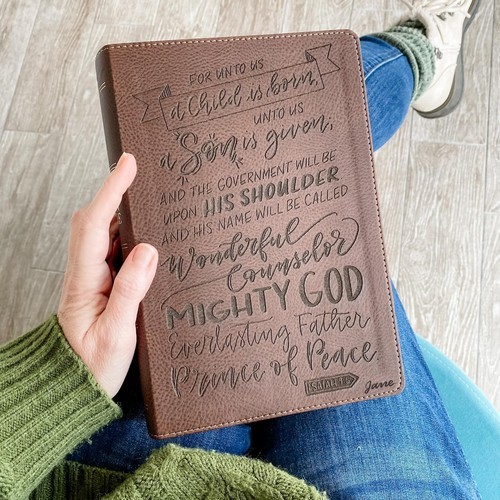 FOR UNTO US
a Child is born,
UNTO US
a Son is given;
AND THE GOVERNMENT WILL BE
UPON HIS SHOULDER
AND HIS NAME WILL BE CALLED
Wonderful
Counselor
MIGHTY GOD
Everlasting Father
Prince of Peace
ISAIAH 9:6
Jane